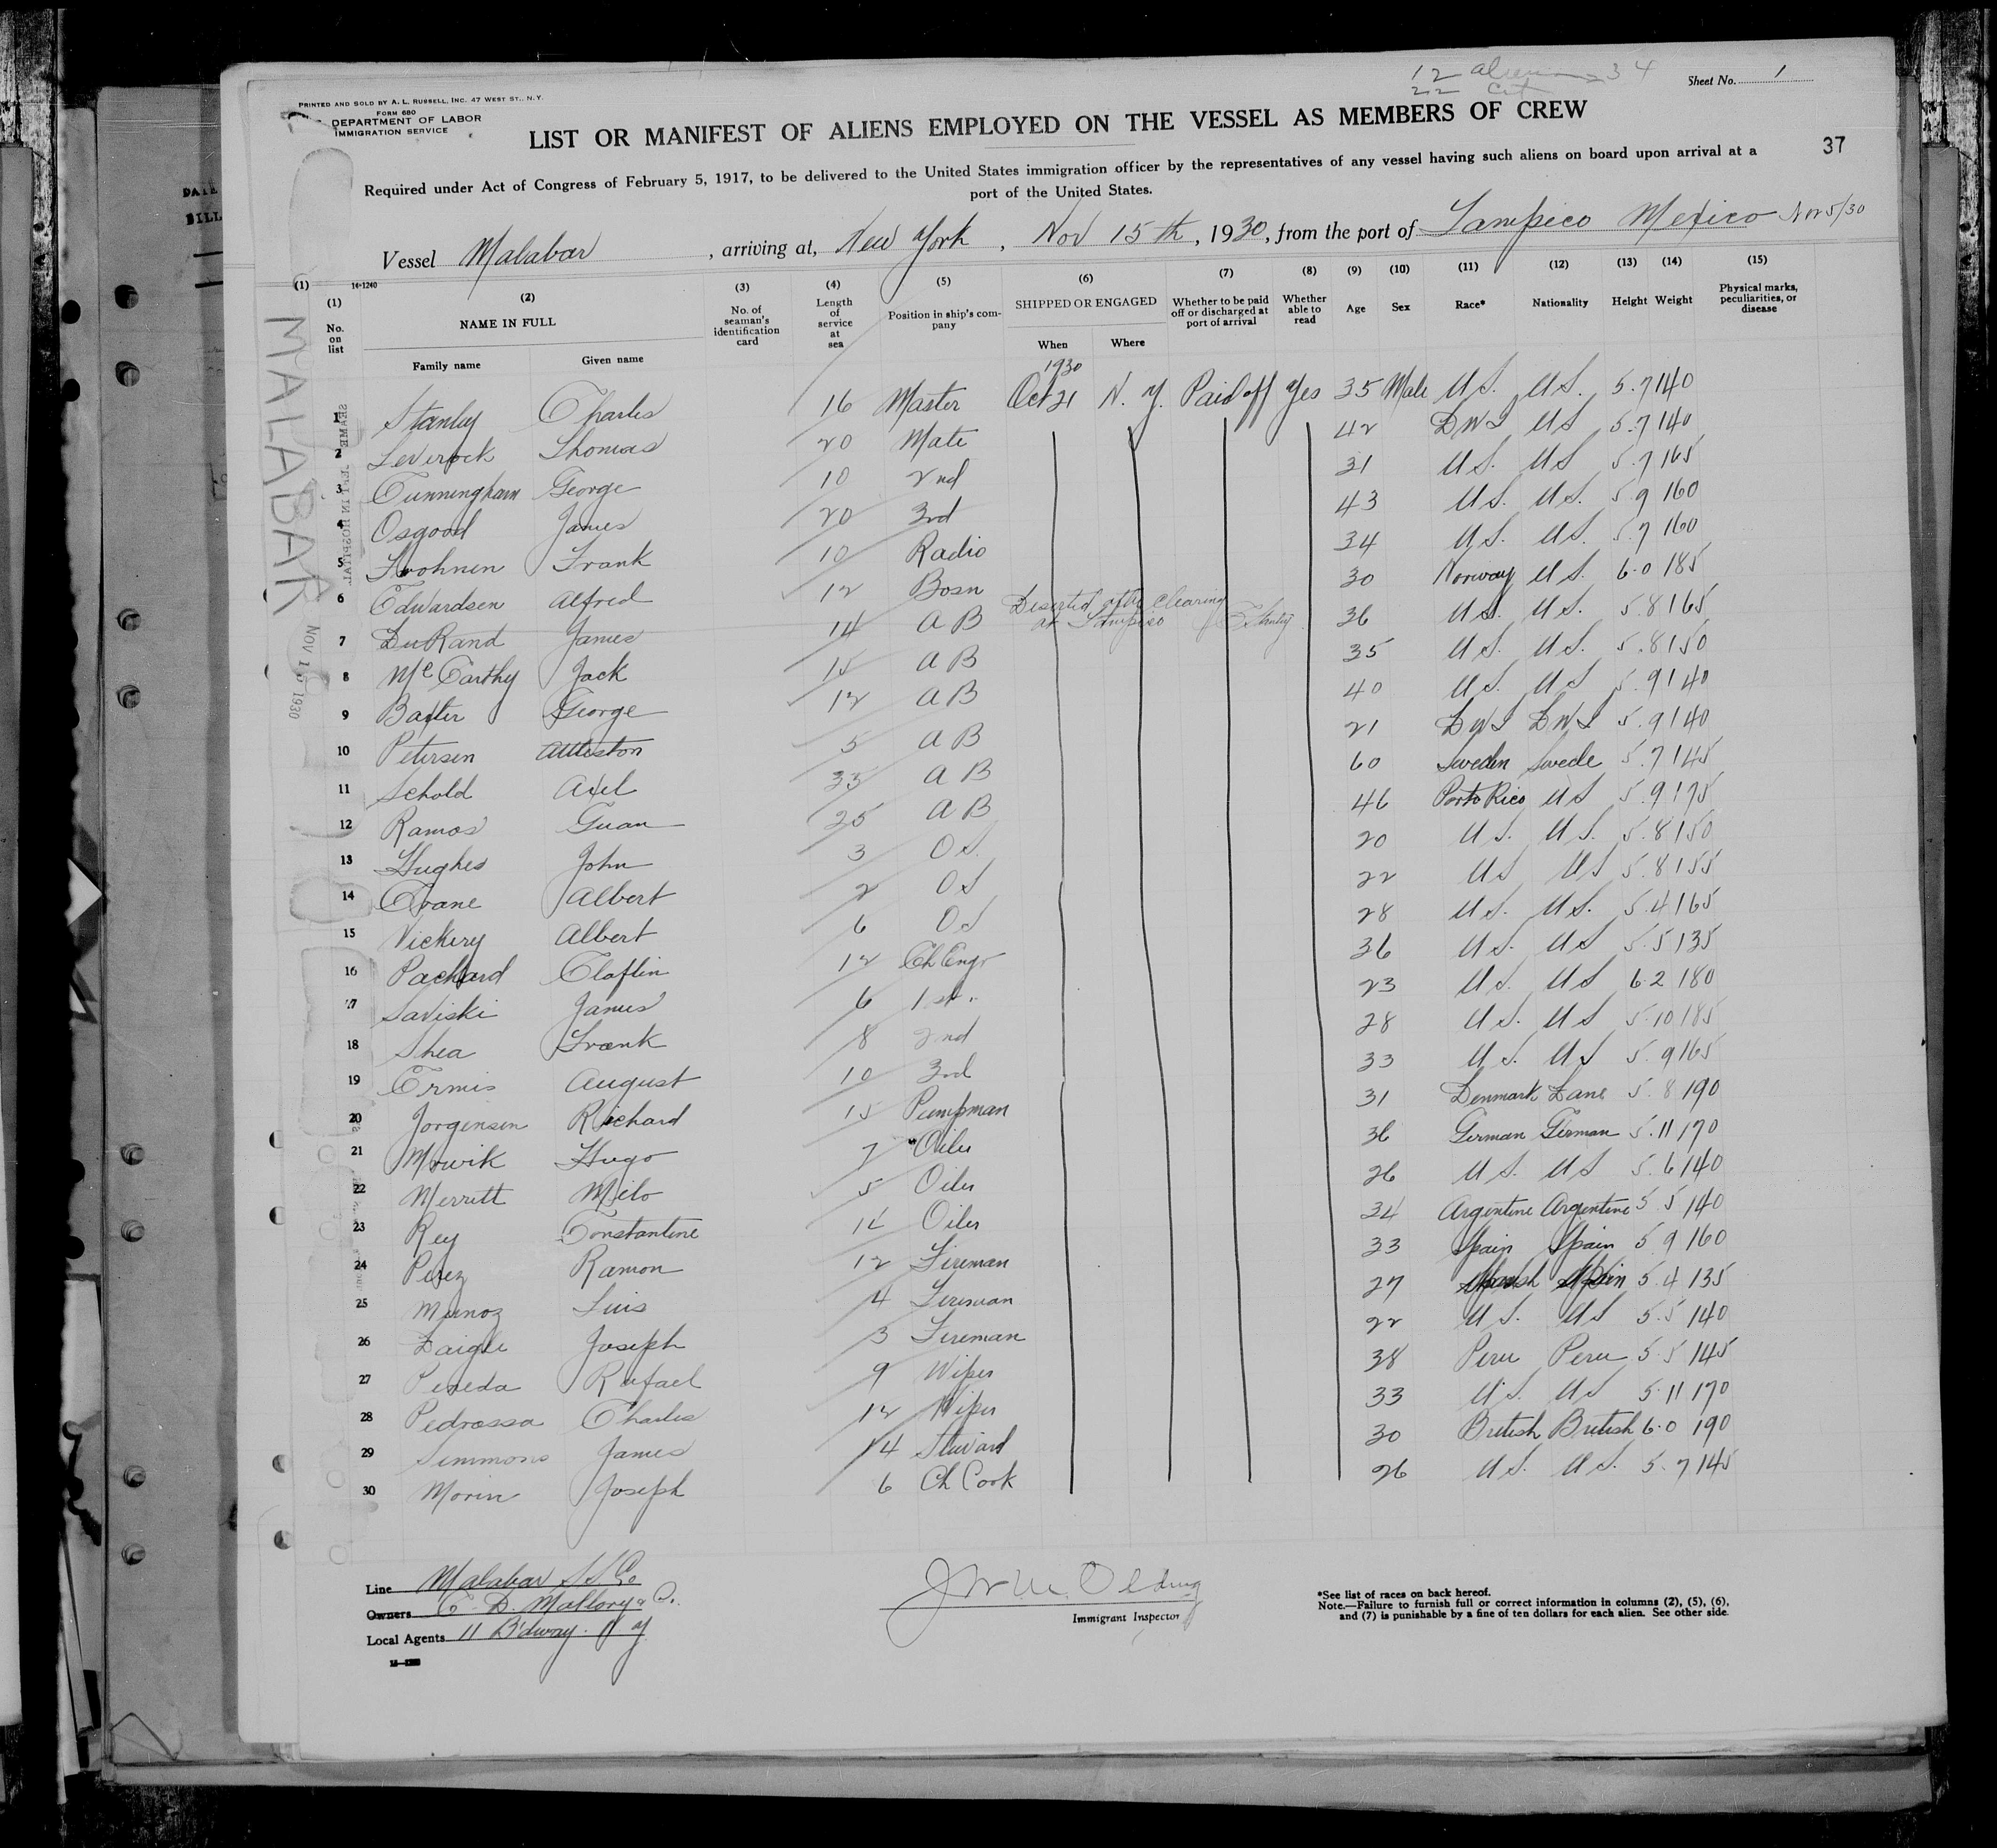 12 aliens 34
22 cit
Sheet No. 1
PRINTED AND SOLD BY A. L. RUSSELL, INC. 47 WEST ST., N.Y.
FORM 680
DEPARTMENT OF LABOR
IMMIGRATION SERVICE
LIST OR MANIFEST OF ALIENS EMPLOYED ON THE VESSEL AS MEMBERS OF CREW
37
Required under Act of Congress of February 5, 1917, to be delivered to the United States immigration officer by the representatives of any vessel having such aliens on board upon arrival at a
port of the United States.
Vessel Malabar, arriving at, New York, Nov 15th, 1930, from the port of Tampico Mexico Nov 5/30
(1) 14-1240
(1) No. on list (2) NAME IN FULL Family name Given name (3) No. of seaman's identification card (4) Length of service at sea (5) Position in ship's company (6) SHIPPED OR ENGAGED When Where (7) Whether to be paid off or discharged at port of arrival (8) Whether able to read (9) Age (10) Sex (11) Race* (12) Nationality (13) Height (14) Weight (15) Physical marks, peculiarities, or disease
1930
1 Stanley Charles 16 Master Oct 21 N. Y. Paid off Yes 35 Male U S. U S. 5.7 140
2 Leverock Thomas 20 Mate 42 D W I U S 5.7 140
3 Cunningham George 10 2nd 31 U S. U S 5.7 165
4 Osgood James 20 3rd 43 U S. U S. 5.9 160
5 Frohnen Frank 10 Radio 34 U. S. U S. 5.7 160
6 Edwardsen Alfred 12 Bosn 30 Norway U S. 6.0 185
7 DuRand James 14 A B Deserted after clearing at Tampico 36 U S. U S. 5.8 165
8 McCarthy Jack 15 A B 35 U S. U S. 5.8 150
9 Baxter George 12 A B 40 U S. U S 5.9 140
10 Petersen Attleston 5 A B 21 D W I D W I 5.9 140
11 Schold Axel 33 A B 60 Sweden Swede 5.7 145
12 Ramos Guan 25 A B 46 Porto Rico U S 5.9 175
13 Hughes John 3 O S. 20 U S. U S. 5.8 150
14 Crane Albert 2 O S 22 U S U S 5.8 155
15 Vickery Albert 6 O S 28 U S. U S. 5.4 165
16 Packard Claflin 12 Ch Engr 36 U S. U S 5.5 135
17 Saviski James 6 1st " 23 U S. U S 6.2 180
18 Shea Frank 8 2nd 28 U S. U S 5.10 185
19 Ermis August 10 3rd 33 U S. U S 5.9 165
20 Jorgensen Richard 15 Pumpman 31 Denmark Dane 5.8 190
21 Mowik Hugo 7 Oiler 36 German German 5.11 170
22 Merritt Milo 5 Oiler 26 U S. U S 5.6 140
23 Rey Constantine 14 Oiler 34 Argentine Argentine 5 5 140
24 Perez Ramon 12 Fireman 33 Spain Spain 5 9 160
25 Munoz Luis 4 Fireman 27 Spanish Spain 5.4 135
26 Daigle Joseph 3 Fireman 22 U S. U S 5.5 140
27 Pereda Rafael 9 Wiper 38 Peru Peru 5.5 145
28 Pedrossa Charles 12 Wiper 33 U S. U S 5.11 170
29 Simmons James 14 Steward 30 British British 6.0 190
30 Morin Joseph 6 Ch Cook 26 U S. U S. 5.7 145
MALABAR
NOV 15 1930
Line Malabar S S Co
Owners C. D. Mallory & Co.
Local Agents 11 B'dway. N Y
Immigrant Inspector
*See list of races on back hereof.
Note.—Failure to furnish full or correct information in columns (2), (5), (6),
and (7) is punishable by a fine of ten dollars for each alien. See other side.